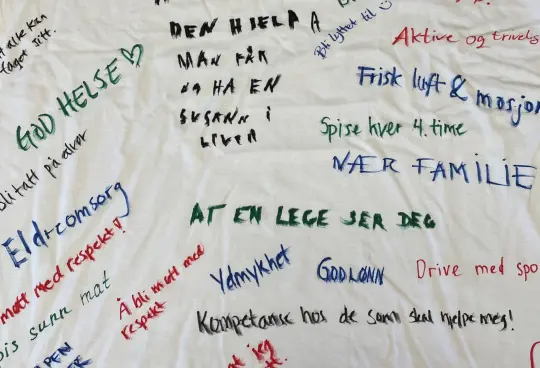 DEN HJELP A
MAN FÅR
og HA EN
SUSANN i
LIVER
Bli lyttet til
Aktive og trivelig
faget sitt.
GOD HELSE
Frisk luft & mosjon
Spise hver 4. time
NÆR FAMILIE
bli tatt på alvor
Eldreomsorg
AT EN LEGE SER DEG
møtt med respekt!
Å bli møtt med
respekt
Ydmykhet
GOD LØNN
Drive med spo
spis sunn mat
Kompetanse hos de som skal hjelpe meg!
at jeg